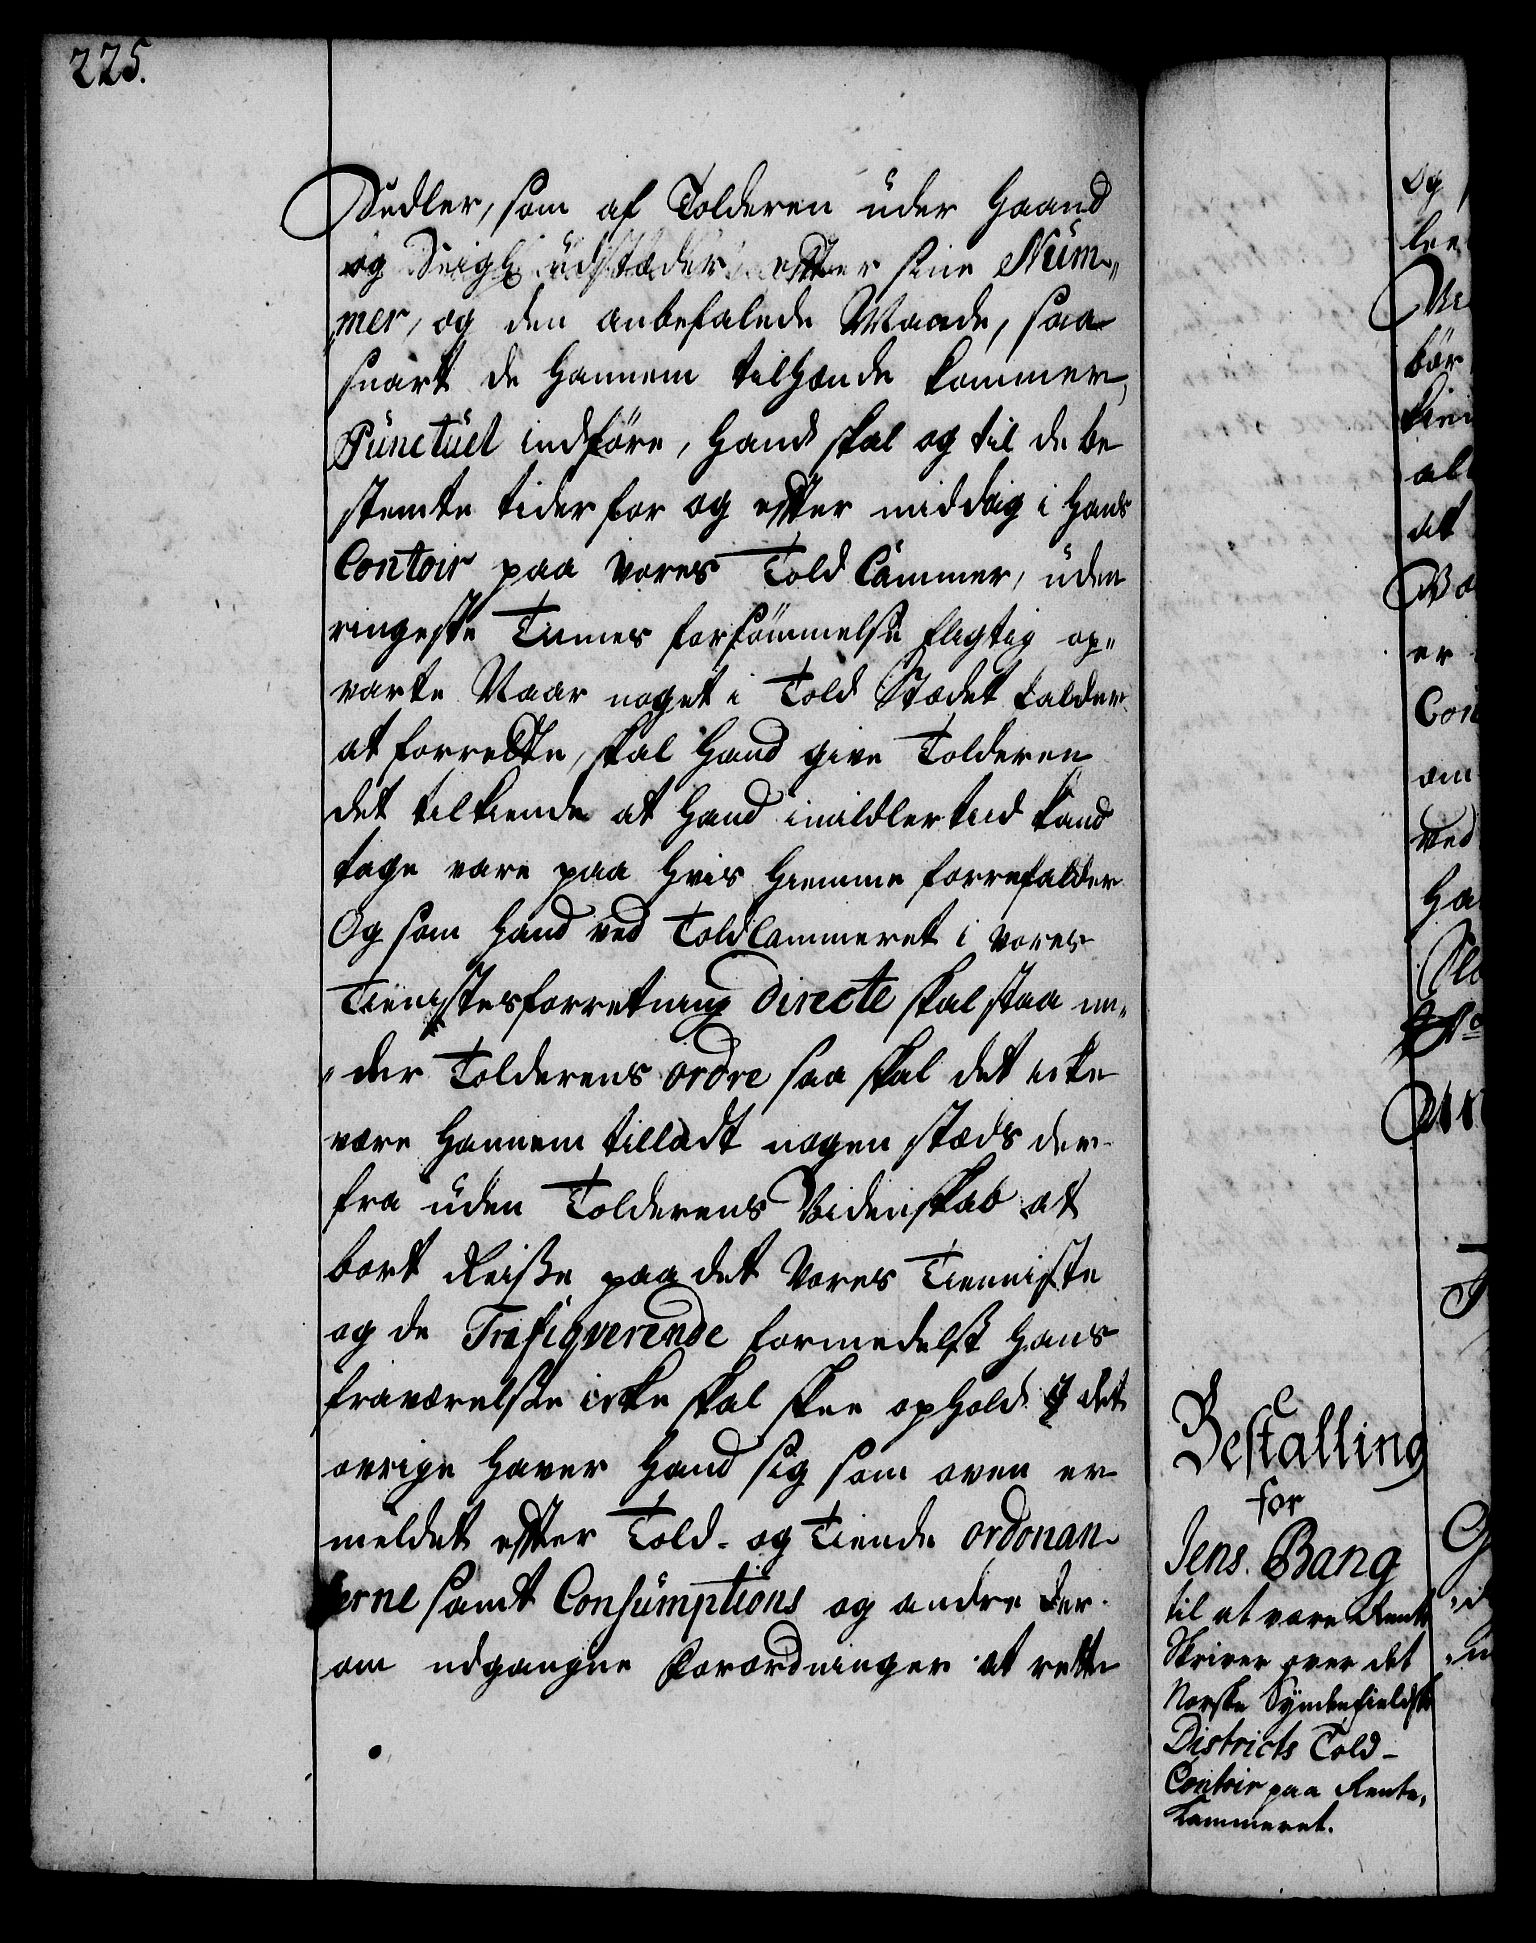 225.
Sedler, som af Tolderen under Haand
og Seigl udstæder efter sine Num-
mer, og den anbefalede Maade, saa
snart de hannem tilhænde kommer,
Punctuel indføre, hand skal og til de be
stemte tider for og efter middag i hans
Contoir paa vores Told Cammer, uden
ringeste Times forsømmelse flitig op-
varte Naar noget i Told Stædet falder
at forrette, skal hand give Tolderen
det tilkiende at hand imidlertiid kand
tage vare paa hvis hiemme forrefalder
Og som hand ved Toldcammeret i vores
Tienistesforretning directe skal staa un-
der Tolderens ordre saa skal det icke
være hannem tilladt nogen stæds der
fra uden Tolderens Videnskab at
bort Reise paa det Vores Tienniste
og de Trafiqverende formedelst hans
fraværelse icke skal skee ophold I det
øvrige haver hand sig som oven er
meldet efter Told- og Tiende ordonan-
serne samt Consumptions og andre der-
om udgangne Forordninger at rette
Bestalling
for
Jens Bang
til at være Rente
Skriver over det
Norske Synden­fieldske
Districts Told-
Contoir paa Rente-
kammeret.